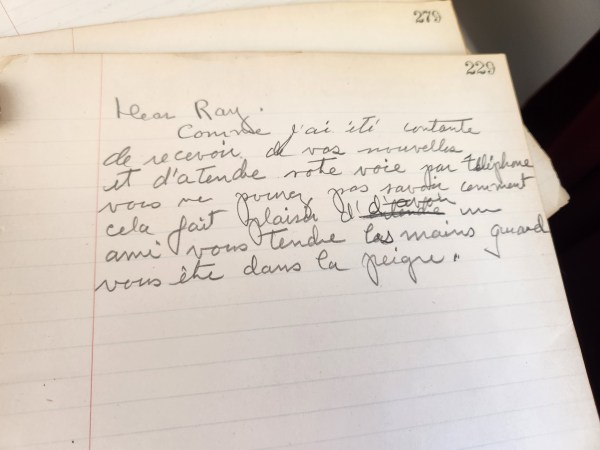 279
229
Dear Ray.
Comme j'ai été contante
de recevoir de vos nouvelles
et d'atendre votre voie par téléphone
vous ne pouvez pas savoir comment
cela fait plaisir d'avoir un
ami vous tendre les mains quand
vous ête dans la peigre.